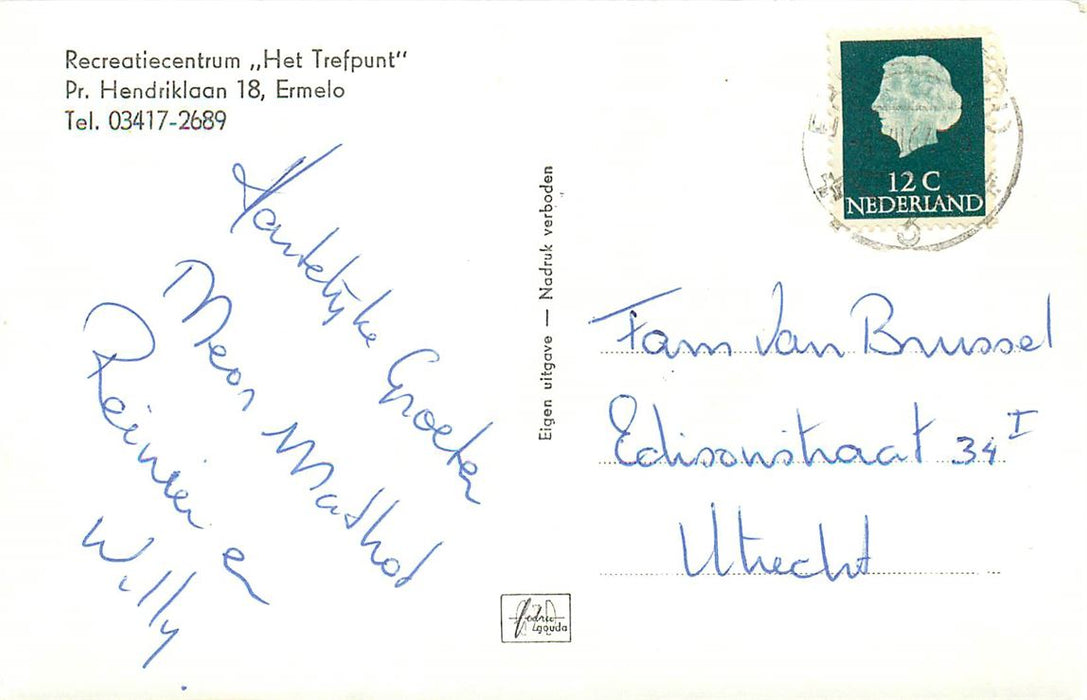 Recreatiecentrum „Het Trefpunt"
Pr. Hendriklaan 18, Ermelo
Tel. 03417-2689
Hartelijke Groeten
Reinier en
Willy
Eigen uitgave — Nadruk verboden
12 C
NEDERLAND
5
Fam Van Brussel
Edisonstraat 34 I
Utrecht
gouda